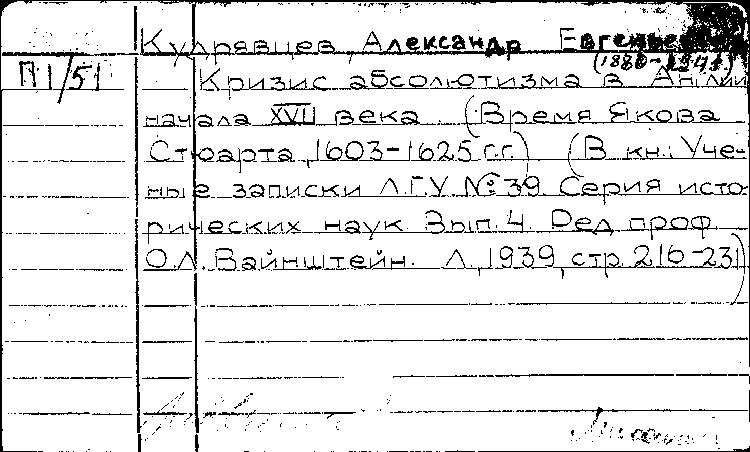 Кудрявцев, Александр Евгеньевич
(1880-1941)
П1/51
Кризис абсолютизма в Англии
начала XVII века (Время Якова
Стюарта, 1603-1625 г.г.) (В кн.: Уче-
ные записки Л.Г.У. №39. Серия исто-
рических наук. Вып. 4. Ред. проф.
О.Л. Вайнштейн. Л., 1939, стр. 216-231)